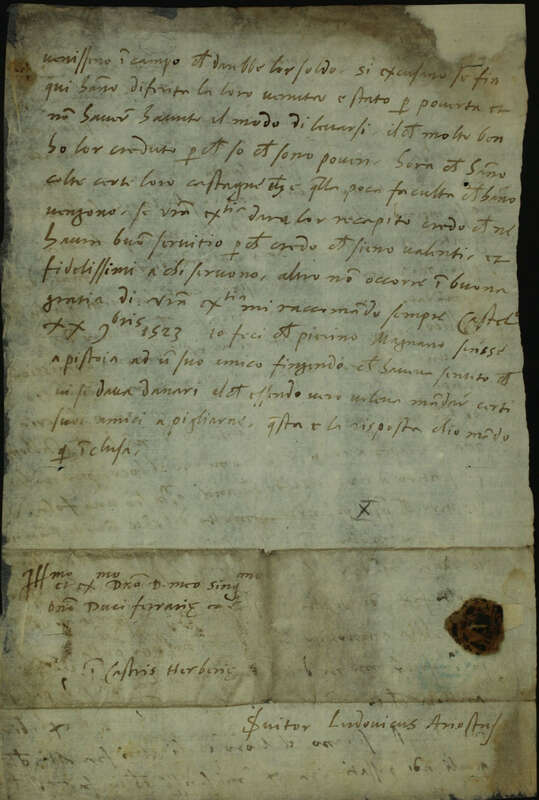 venissino ĩ campo ch darebbe lor soldo. si excusano se fin
qui hãno diferita la loro venuta e stato p̱ poverta et
nõ haver havuto el modo di levarsi, el ch molto ben
ho lor creduto p̱ ch so ch sono poveri. hora ch hãno
colte certe loro castagne et q̃lla poca faculta ch hãno
vengono, se vr̃a ex.tia dara lor recapito credo ch ne
havra buõ servitio p̱ ch credo ch sieno valenti, et
fidelissimi a chi servono, altro nõ occorre ĩ buona
gratia di vr̃a ex.tia mi raccomãdo sempre Castel.
XX 9bris 1523 io feci ch pierino Magnano scrisse
a pistoia ad ũ suo amico fingendo ch haveva sentito ch
vi se dava danari el ch essendo vero voleva mãdar certi
suoi amici a pigliarne, q̃sta e la risposta ch io mãdo
q̱ ĩclusa.
X
Ill.mo et ex.mo Dño D. meo sing.mo
Dño Duci ferrarie
ĩ Castris Herberie
Ludovicus Ariostus